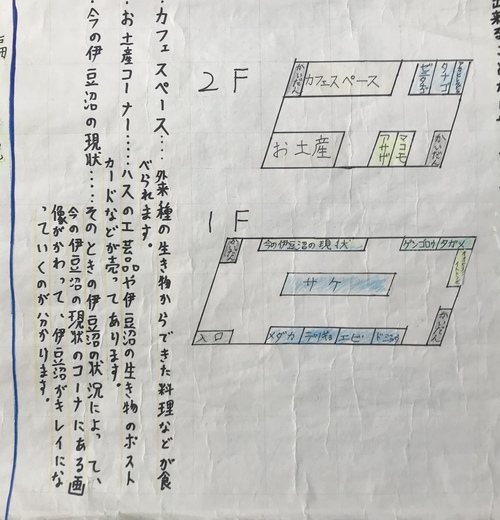 2F
かいだん
カフェスペース
ゼニタナゴ
タナゴ
お土産
アサザ
マコモ
かいだん
1F
かいだん
今の伊豆沼の現状
ゲンゴロウ
タガメ
サケ
かいだん
入口
メダカ
エビ
ドジョウ
・カフェスペース…外来種の生き物からできた料理などが食
べられます。
・お土産コーナー……ハスの工芸品や伊豆沼の生き物のポスト
カードなどが売ってあります。
・今の伊豆沼の現状……そのときの伊豆沼の状況によって、
今の伊豆沼の現状のコーナにある画
像がかわって、伊豆沼がキレイにな
っていくのが分かります。